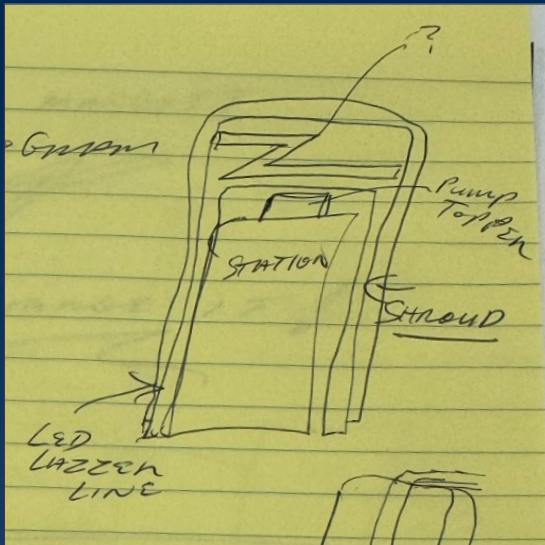 ?
Pump
Topper
STATION
SHROUD
LED
LAZZER
LINE